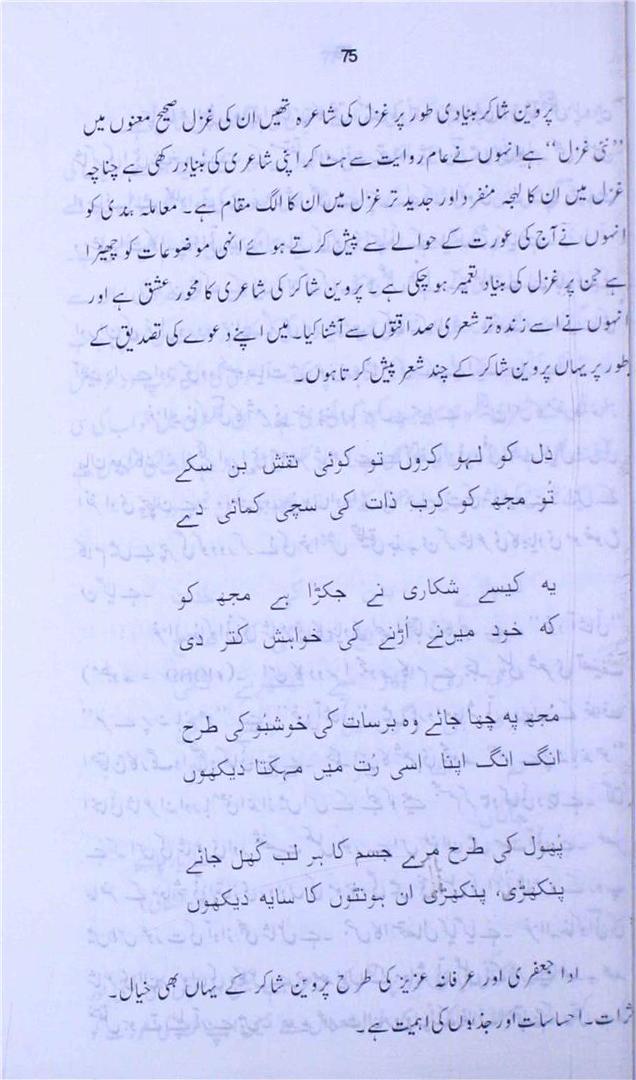 75
پروین شاکر بنیادی طور پر غزل کی شاعرہ تھیں ان کی غزل صحیح معنوں میں
”نئی غزل“ ہے انہوں نے عام روایت سے ہٹ کر اپنی شاعری کی بنیاد رکھی ہے چناچہ
غزل میں ان کا لہجہ منفرد اور جدید تر غزل میں ان کا الگ مقام ہے۔ معاملہ بندی کو
انہوں نے آج کی عورت کے حوالے سے پیش کرتے ہوئے انہی موضوعات کو چھیڑا
ہے جن پر غزل کی بنیاد تعمیر ہو چکی ہے۔ پروین شاکر کی شاعری کا محور عشق ہے اور
انہوں نے اسے زندہ تر شعری صداقتوں سے آشنا کیا۔ میں اپنے دعوے کی تصدیق کے
طور پر یہاں پروین شاکر کے چند شعر پیش کرتا ہوں۔
دِل کو لہو کروں تو کوئی نقش بن سکے
تُو مجھ کو کرب ذات کی سچی کمائی دے
یہ کیسے شکاری نے جکڑا ہے مجھ کو
کہ خود میں نے اُڑنے کی خواہش کتر دی
مُجھ پہ چھا جائے وہ برسات کی خوشبو کی طرح
انگ انگ اپنا اسی رُت میں مہکتا دیکھوں
پُھول کی طرح مرے جسم کا ہر لب کُھل جائے
پنکھڑی، پنکھڑی ان ہونٹوں کا سایہ دیکھوں
ادا جعفری اور عرفانہ عزیز کی طرح پروین شاکر کے یہاں بھی خیال۔
ثرات۔ احساسات اور جذبوں کی اہمیت ہے۔